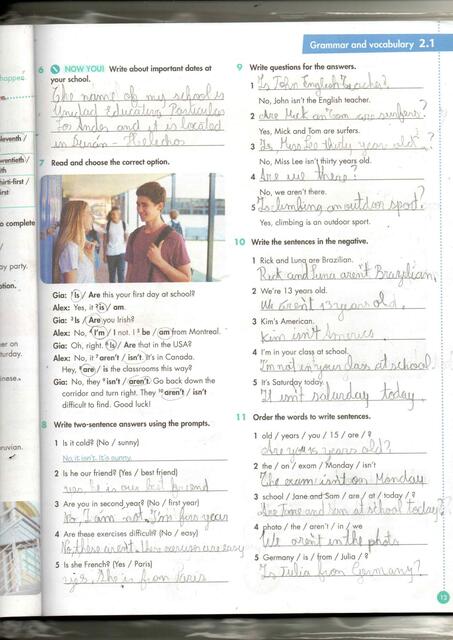 Grammar and vocabulary 2.1
6 NOW YOU! Write about important dates at
your school.
The name of my school is
Unidad Educativa Particular
Los Andes and it is located
in Durán -
7 Read and choose the correct option.
Gia: 1 Is / Are this your first day at school?
Alex: Yes, it 2 is / am.
Gia: 3 Is / Are you Irish?
Alex: No, 4 I'm / I not. I 5 be / am from Montreal.
Gia: Oh, right. 6 Is / Are that in the USA?
Alex: No, it 7 aren't / isn't. It's in Canada.
Hey, 8 are / is the classrooms this way?
Gia: No, they 9 isn't / aren't. Go back down the
corridor and turn right. They 10 aren't / isn't
difficult to find. Good luck!
8 Write two-sentence answers using the prompts.
1 Is it cold? (No / sunny)
No, it isn't. It's sunny.
2 Is he our friend? (Yes / best friend)
yes, he is our best friend
3 Are you in second year? (No / first year)
No, I am not. I'm firs year
4 Are these exercises difficult? (No / easy)
No, these arent. these exercises are easy
5 Is she French? (Yes / Paris)
yes, She is from Paris
9 Write questions for the answers.
1 Is John English Teacher?
No, John isn't the English teacher.
2 Are Mick an Tom are surfers?
Yes, Mick and Tom are surfers.
3 Is Miss Lee thirty year old?
No, Miss Lee isn't thirty years old.
4 Are we there?
No, we aren't there.
5 Is climbing an outdoor sport?
Yes, climbing is an outdoor sport.
10 Write the sentences in the negative.
1 Rick and Luna are Brazilian.
Rick and Luna aren't Brazilian.
2 We're 13 years old.
We aren't 13 year old.
3 Kim's American.
Kim isn't America
4 I'm in your class at school.
I'm not in your class at school.
5 It's Saturday today.
It isn't saturday today.
11 Order the words to write sentences.
1 old / years / you / 15 / are / ?
Are you 15 years old?
2 the / on / exam / Monday / isn't
The exam isn't on Monday
3 school / Jane and Sam / are / at / today / ?
Are Jane and Sam at school today?
4 photo / the / aren't / in / we
We aren't in the photo
5 Germany / is / from / Julia / ?
Is Julia from Germany?
13